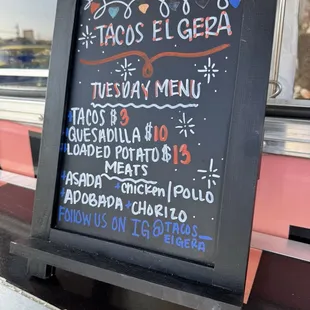 TACOS EL GERA
TUESDAY MENU
TACOS $3
QUESADILLA $10
LOADED POTATO $13
MEATS
ASADA chicken/POLLO
ADOBADA CHORIZO
FOLLOW US ON IG @TACOS_
ELGERA